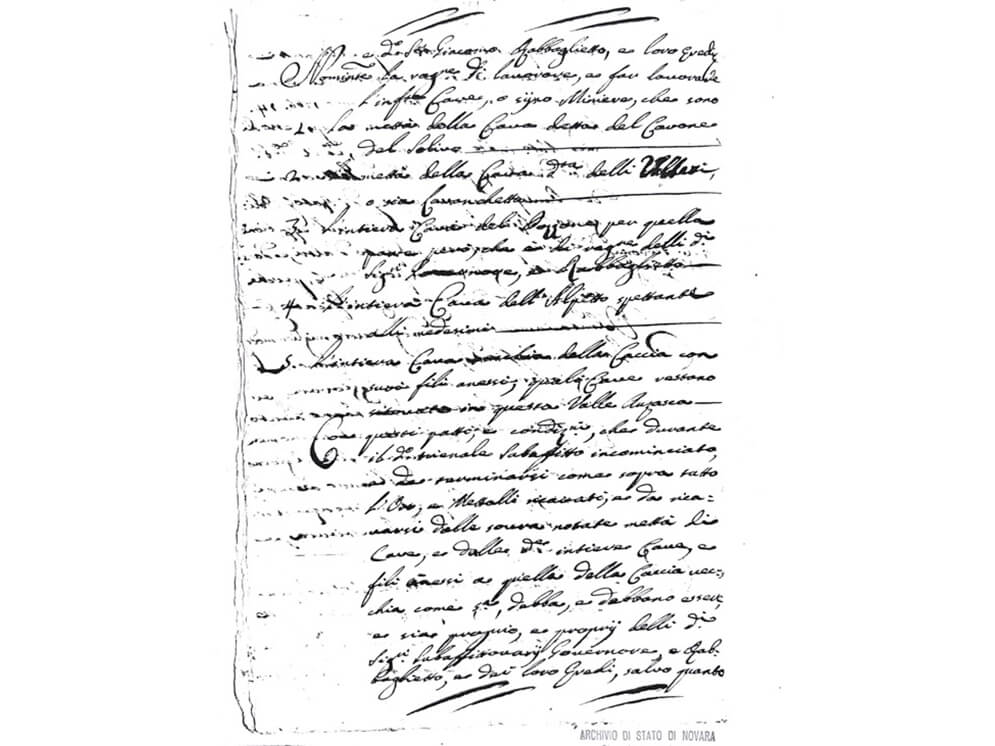 e do Sr Giacomo Rabbaglietto, e loro Eredi
Nominte la ragne di lavorare, e far lavorare
l'infte Cave, o siino Miniere, che sono
1. La mettà della Cava detta del Cavone
del Solivo
mettà della Cava dta delli
o sia Cavonchetto
3. L'intiera Cava del Pozzone per quella
parte però, che è di ragne delli di
Sigri e Rabbaglietto
4. L'intiera Cava dell'Alpetto spettante
alli medesimi
5. L'intiera Cava vecchia della Caccia con
suoi fili anessi, quali Cave restano
situate in questa Valle Anzasca
Con questi patti, e condizni, che durante
il do trienale Subaffitto incominciato,
e da terminarsi come sopra tutto
l'Oro, e Mettalli ricavati, e da rica-
varsi dalle sovra notate mettà di
Cave, e dalle de intiere Cave, e
fili anessi a quella della Caccia vec-
chia come sa, debba, e debbano esser,
e sia proprio, e proprij delli di
Sigri Subaffittavarij Governore, e Rab-
baglietto, e dai loro Eredi, salvo quanto
ARCHIVIO DI STATO DI NOVARA